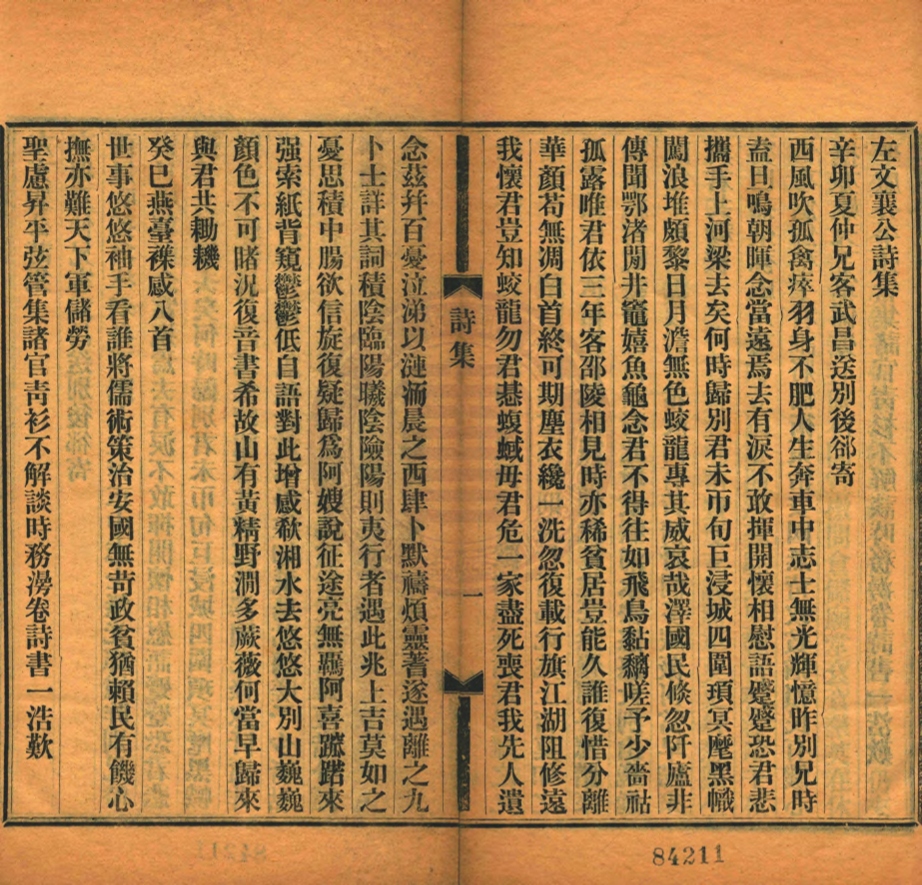 左文襄公詩集
辛卯夏仲兄客武昌送別後卻寄
西風吹孤禽瘁羽身不肥人生奔車中志士無光輝憶昨別兄時
盍旦鳴朝暉念當遠焉去有淚不敢揮開懷相慰語蹙蹙恐君悲
攜手上河梁去矣何時歸別君未帀旬巨浸城四圍頊冥麾黑幟
闐浪堆頗黎日月澹無色蛟龍專其威哀哉澤國民倏忽阡廬非
傳聞鄂渚閒井竈嬉魚龜念君不得往如飛鳥黏黐嗟予少嗇祜
孤露唯君依三年客邵陵相見時亦稀貧居豈能久誰復惜分離
華顏苟無凋白首終可期塵衣纔一洗忽復載行旗江湖阻修遠
我懷君豈知蛟龍勿君惎蝮蜮毋君危一家盡死喪君我先人遺
詩集
一
念茲幷百憂泣涕以漣洏晨之西肆卜默禱煩靈蓍遂遇離之九
卜士詳其詞積陰臨陽曦陰險陽則夷行者遇此兆上吉莫如之
憂思積中腸欲信旋復疑歸爲阿嫂說征途亮無羈阿喜蹠踏來
强索紙背窺鬱鬱低自語對此增感欷湘水去悠悠大別山巍巍
顏色不可睹況復音書希故山有黃精野澗多蕨薇何當早歸來
與君共耡耭
癸巳燕臺襍感八首
世事悠悠袖手看誰將儒術策治安國無苛政貧猶賴民有饑心
撫亦難天下軍儲勞
聖慮昇平弦管集諸官靑衫不解談時務漫卷詩書一浩歎
84211